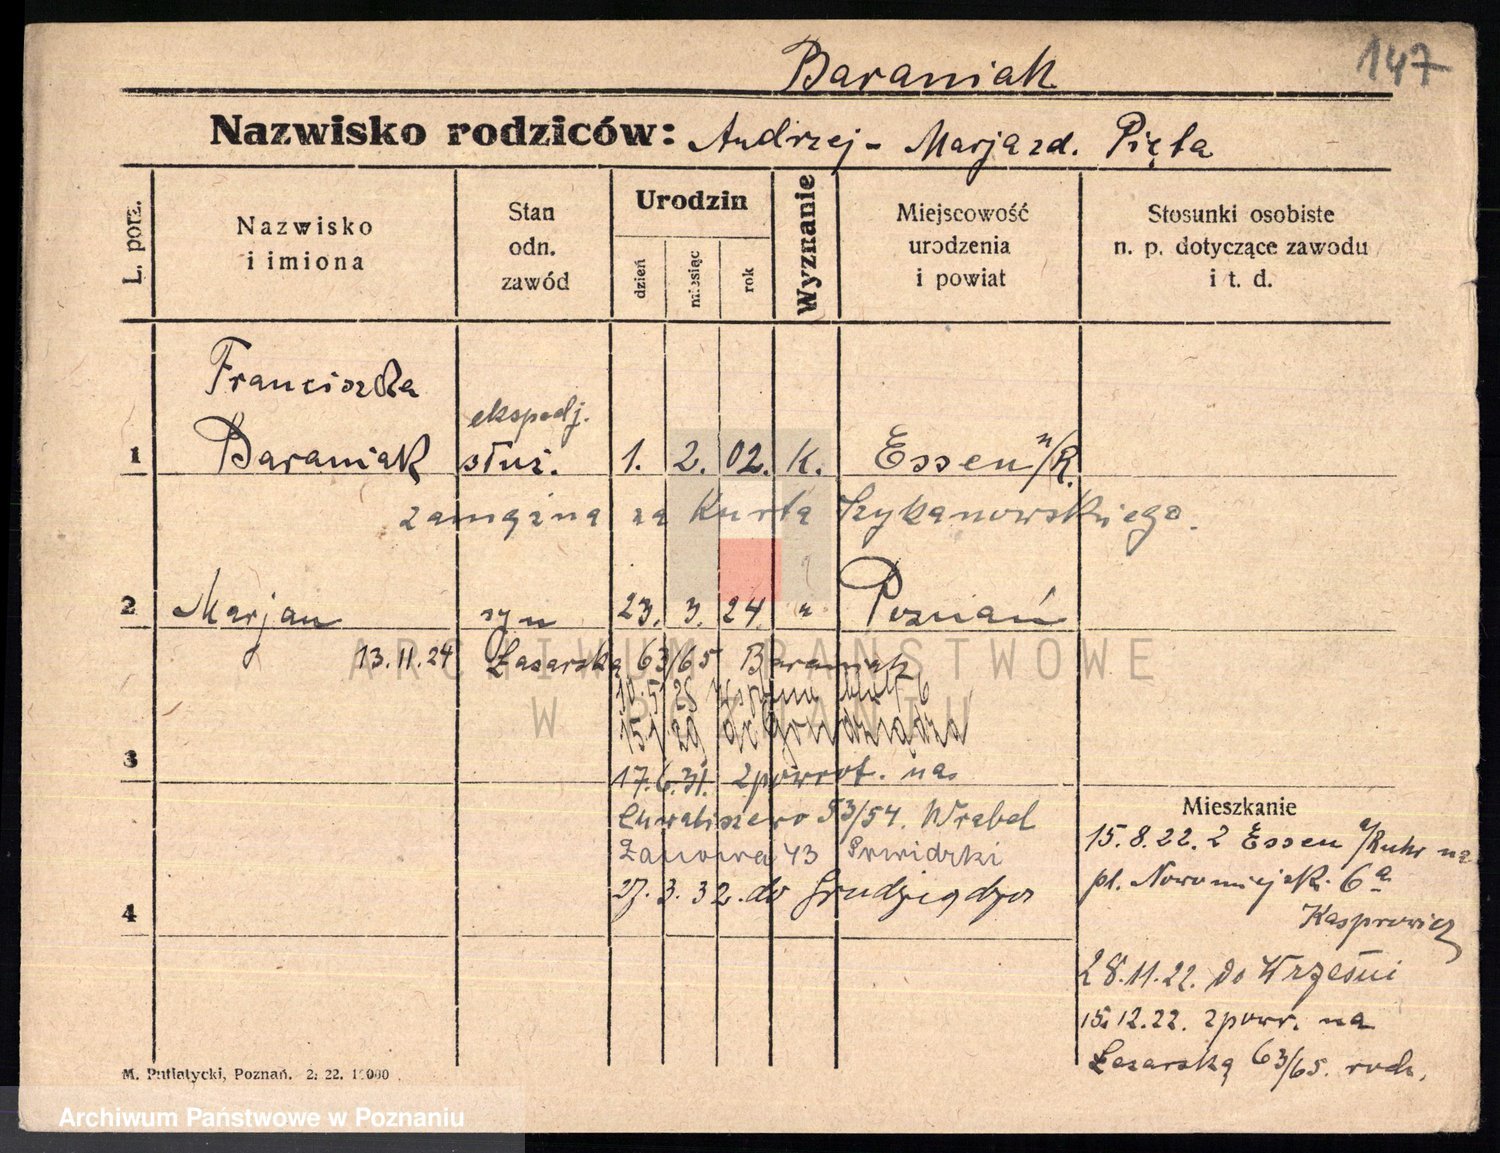 147
Baraniak
Nazwisko rodziców: Andrzej - Marja zd. Pięta
L. porz.
Nazwisko
i imiona
Stan
odn.
zawód
Urodzin
dzień
miesiąc
rok
Wyznanie
Miejscowość
urodzenia
i powiat
Stosunki osobiste
n. p. dotyczące zawodu
i t. d.
Franciszka
ekspedj.
1 Baraniak służ. 1. 2. 02. K. Essen n/R.
zamężna za Kurta Szykanowskiego.
2 Marjan syn 23. 3. 24. " Poznań
13.11.24 Łazarską 63/65 Baraniak
15.1.29 do Grudziądza
3
17.6.31. zpowrot. na
53/54. Wrabel
43
27.3.32. do Grudziądza
4
Mieszkanie
15.8.22. z Essen n/Ruhr na
pl. Nowomiejsk. 6a
Kasprowicz
28.11.22. do Wrześni
15.12.22. zpowr. na
Łazarską 63/65. rodz.
M. Putiatycki, Poznań. 2. 22. 10000
ARCHIWUM PAŃSTWOWE
W POZNANIU
Archiwum Państwowe w Poznaniu